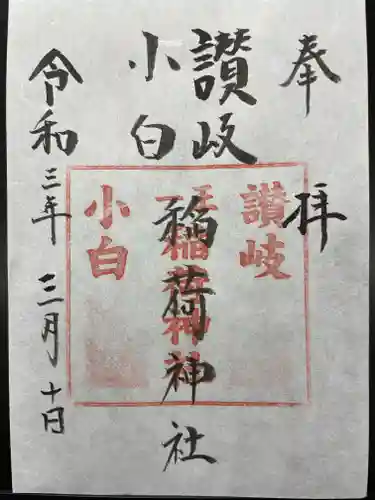 奉拝
讃岐
小白
稲荷神社
令和三年 三月 十日
讃岐
稲荷神社
小白